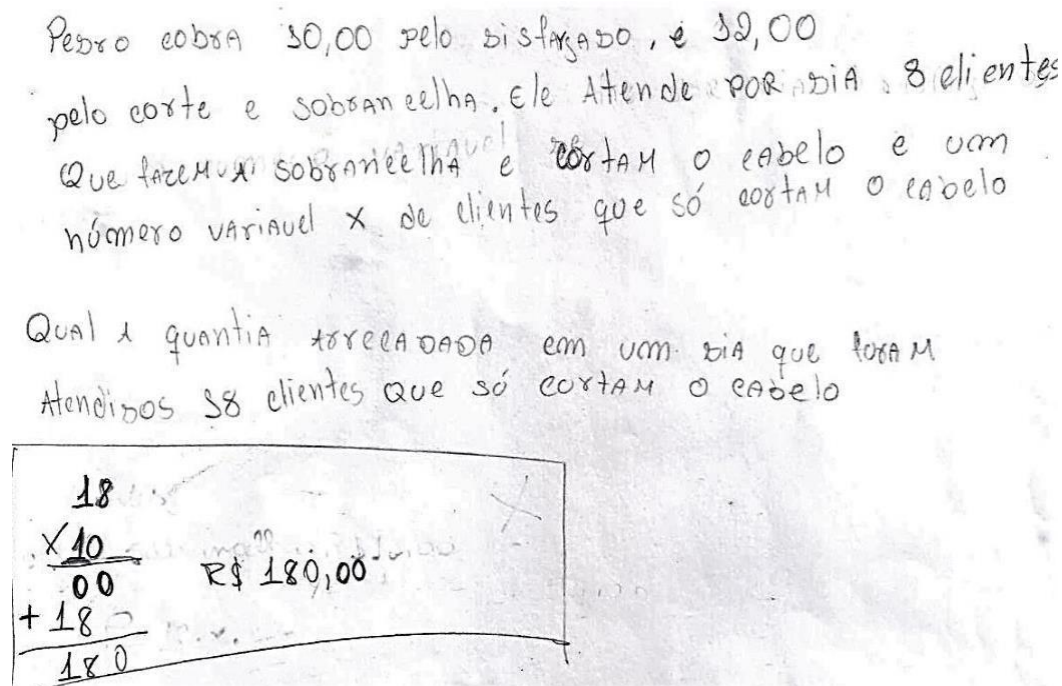 Pedro cobra 10,00 pelo disfarçado, e 12,00
pelo corte e sobrancelha. Ele Atende POR DIA 8 clientes
Que fazem A sobrancelha e cortAM o cabelo e um
número variavel X de clientes que só cortAM o cabelo
Qual A quantia arrecadada em um dia que foram
Atendidos 18 clientes Que só cortAM o cabelo
18
X 10
00
R$ 180,00
+ 18
180